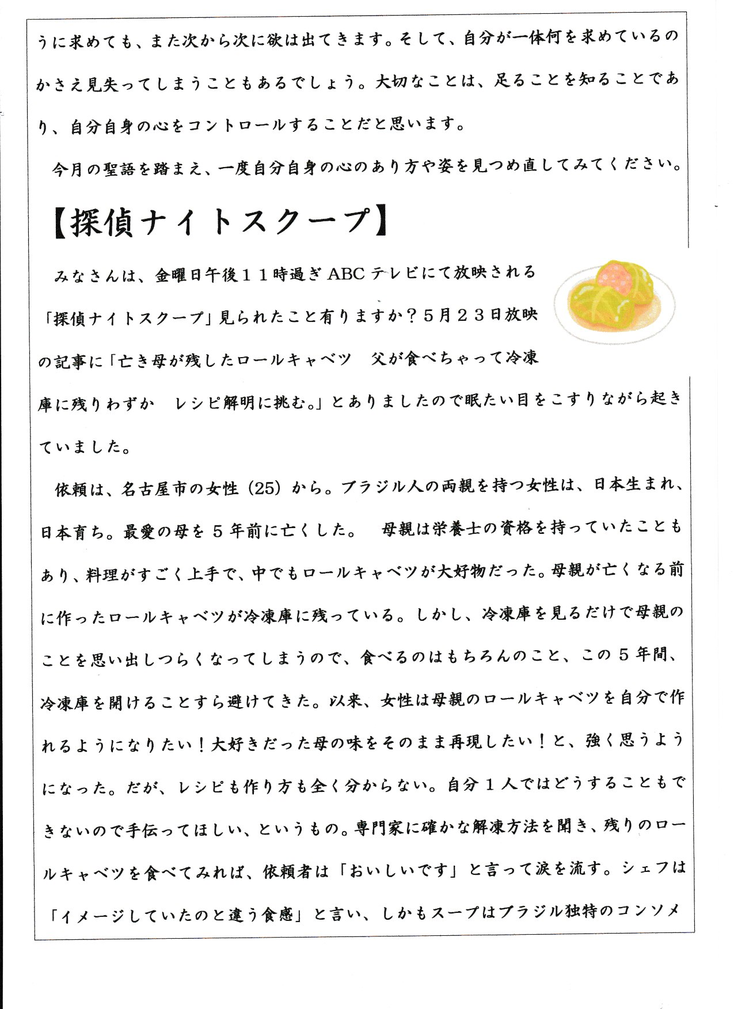 うに求めても、また次から次に欲は出てきます。そして、自分が一体何を求めているの
かさえ見失ってしまうこともあるでしょう。大切なことは、足ることを知ることであ
り、自分自身の心をコントロールすることだと思います。
今月の聖語を踏まえ、一度自分自身の心のあり方や姿を見つめ直してみてください。
【探偵ナイトスクープ】
みなさんは、金曜日午後１１時過ぎ ABC テレビにて放映される
「探偵ナイトスクープ」見られたこと有りますか？５月２３日放映
の記事に「亡き母が残したロールキャベツ　父が食べちゃって冷凍
庫に残りわずか　レシピ解明に挑む。」とありましたので眠たい目をこすりながら起き
ていました。
依頼は、名古屋市の女性（25）から。ブラジル人の両親を持つ女性は、日本生まれ、
日本育ち。最愛の母を 5 年前に亡くした。　母親は栄養士の資格を持っていたことも
あり、料理がすごく上手で、中でもロールキャベツが大好物だった。母親が亡くなる前
に作ったロールキャベツが冷凍庫に残っている。しかし、冷凍庫を見るだけで母親の
ことを思い出しつらくなってしまうので、食べるのはもちろんのこと、この 5 年間、
冷凍庫を開けることすら避けてきた。以来、女性は母親のロールキャベツを自分で作
れるようになりたい！大好きだった母の味をそのまま再現したい！と、強く思うよう
になった。だが、レシピも作り方も全く分からない。自分 1 人ではどうすることもで
きないので手伝ってほしい、というもの。専門家に確かな解凍方法を聞き、残りのロー
ルキャベツを食べてみれば、依頼者は「おいしいです」と言って涙を流す。シェフは
「イメージしていたのと違う食感」と言い、しかもスープはブラジル独特のコンソメ